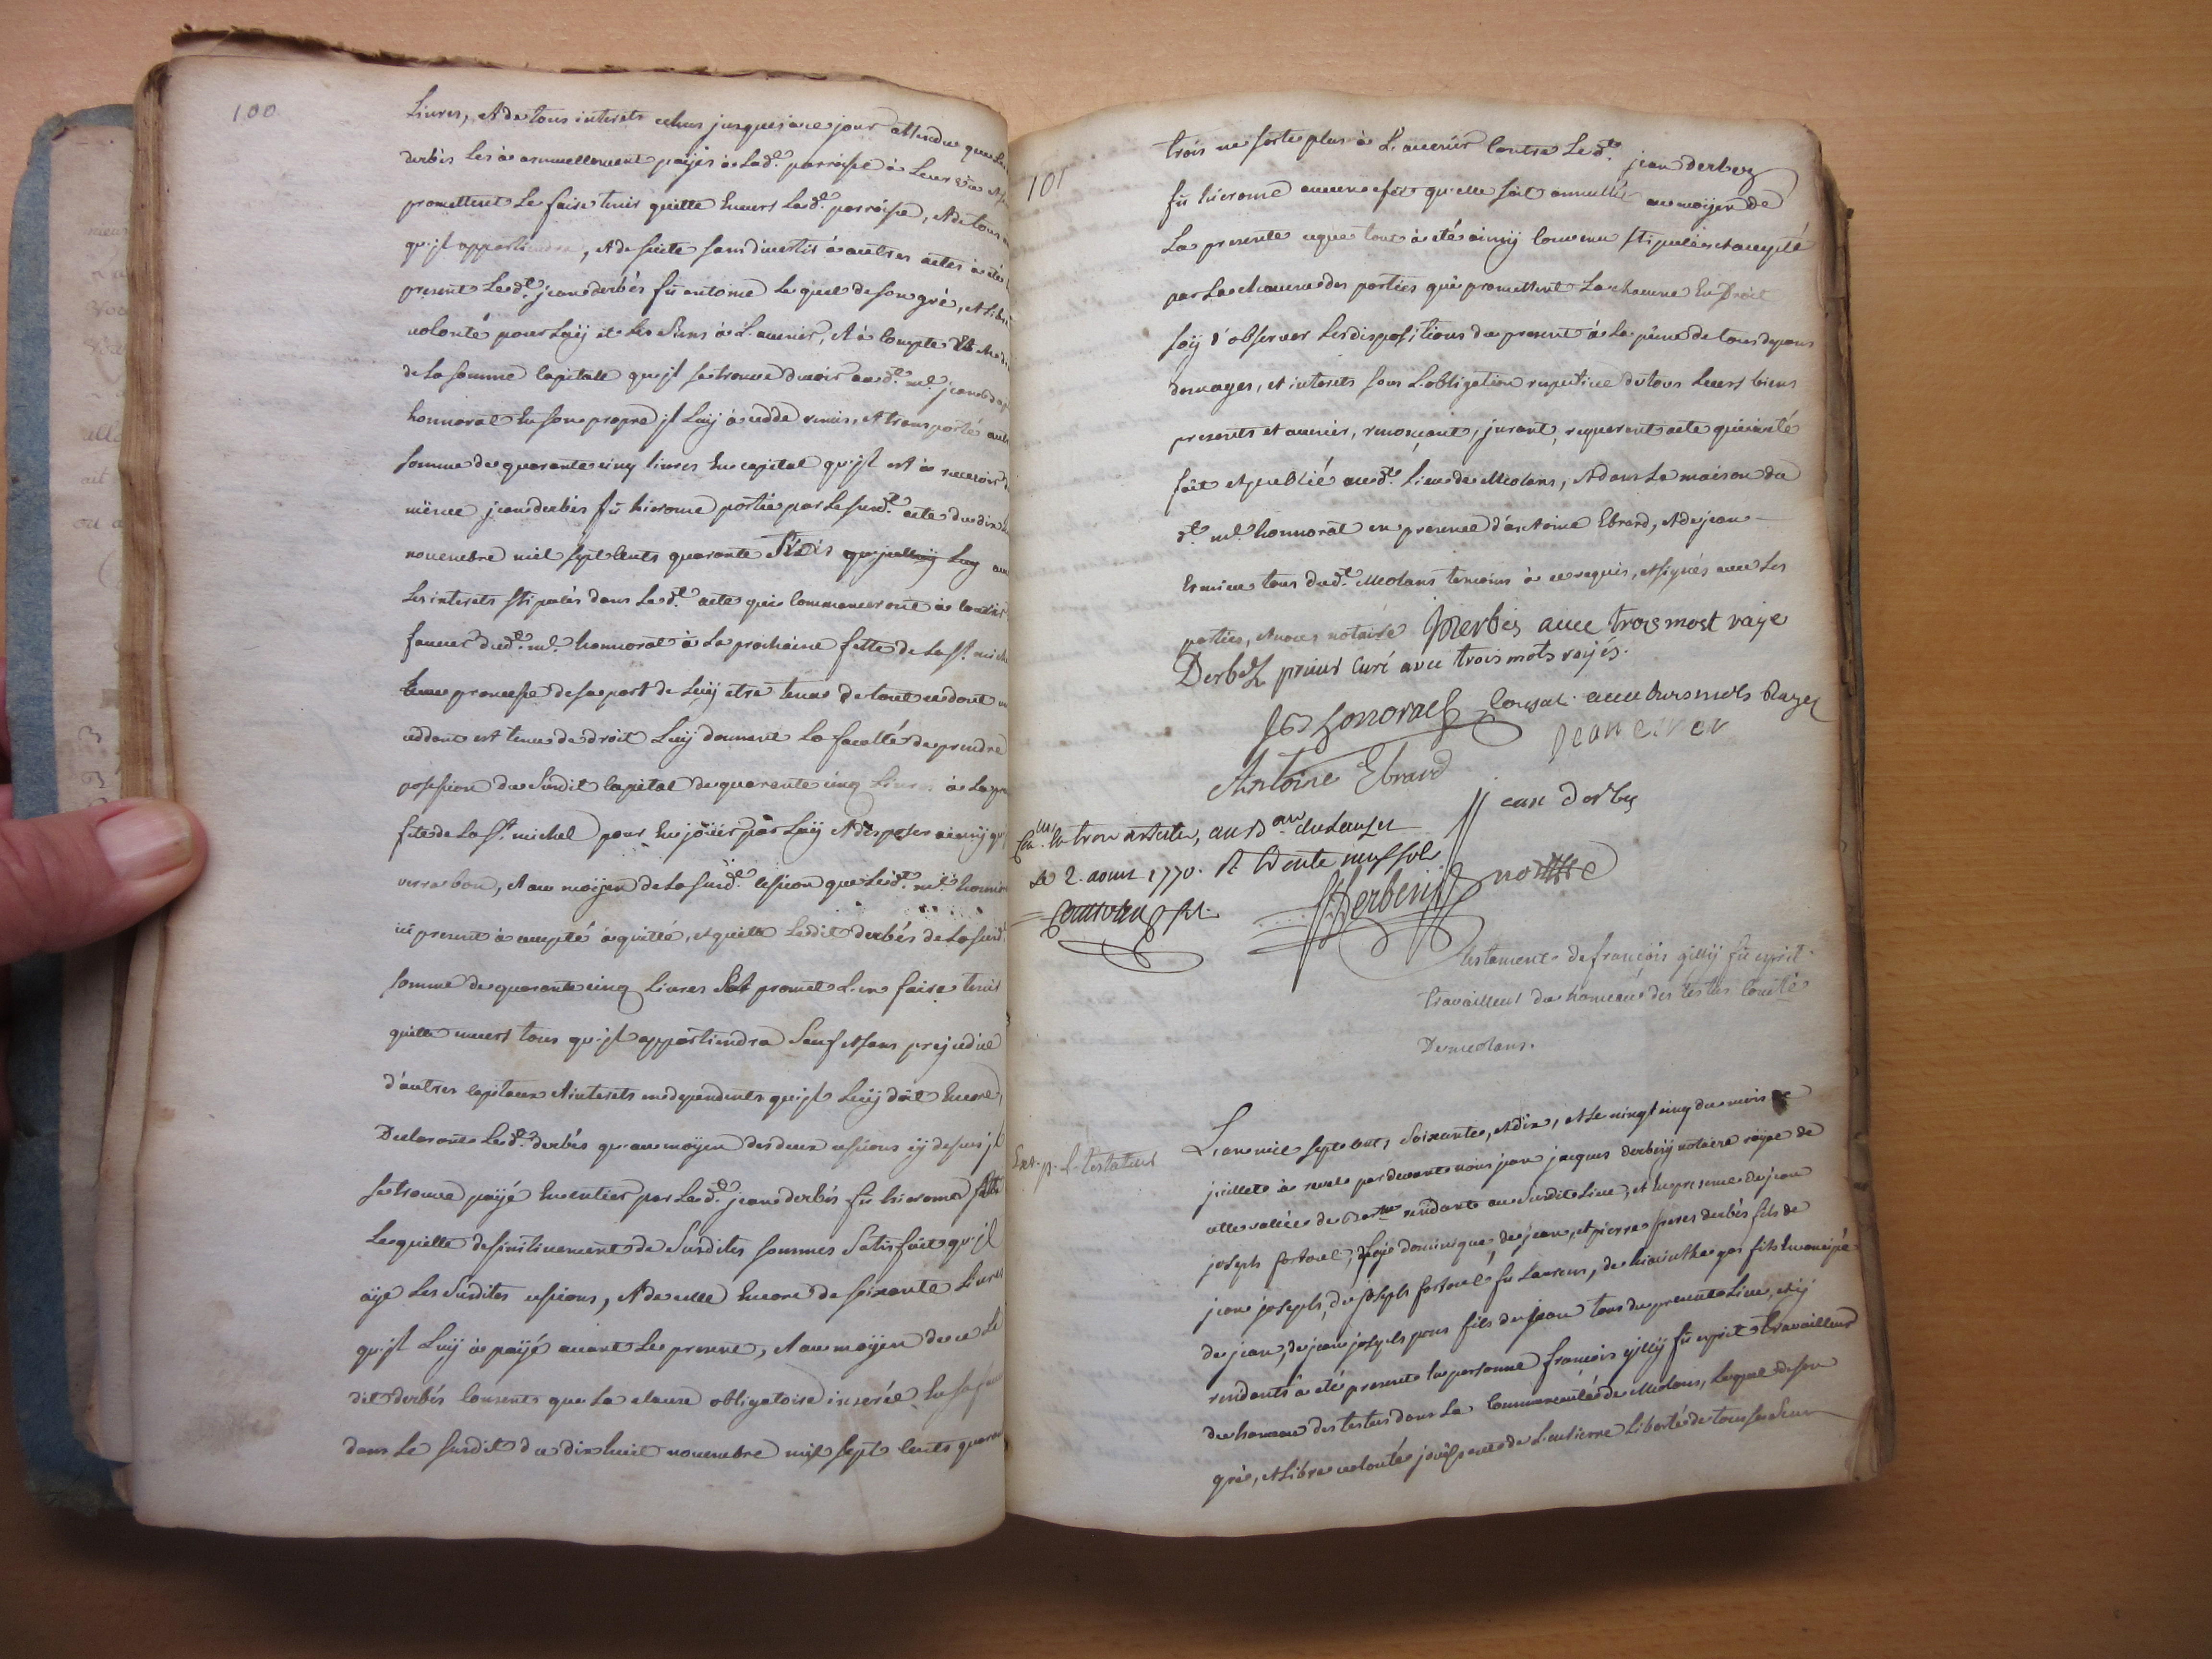 100
Livres, Et de tous interets echus jusques a ce jour attendu que
derbés Les à annuellement paÿés a Lad.e parroisse à
promettent Le faire tenir quitte Envers Lad.e parroisse, Et de tous
qu'jl appartiendra, Et de suite sans divertir à autres actes à été
present Led.t jean derbés fû antoine Lequel de son gré, Et Libre
volonté pour Luÿ et Les Siens à L'avenir, Et à Compte
de La somme Capitale qu'jl se trouve devoir aud.t m.e jean
honnorat En son propre jl Luÿ à cedé remis, Et transporté
somme de quarante cinq livres En capital qu'jl est à recevoir
même jean derbés fû hierome portée par Le susd.t acte du dix
novembre mil sept Cents quarante
Les interets stipulés dans Led.t acte qui Commenceront à Courir
faveur dud.t m.e honnorat à La prochaine fette de La S.t michel
promesse de sa part de Luÿ etre tenu de tout ce dont un
cedant est tenu de droit Luÿ donnant La faculté de prendre
possession du Susdit Capital de quarante cinq Livres à La
fete de La S.t michel pour En joüir par Luÿ Et disposer ainsÿ qu'
verra bon, Et au moÿen de La susd.e cession que Led.t m.e honnorat
ici present à accepté à quitté, et quitte Ledit derbés de La susd.e
somme de quarante cinq Livres Et promet L'en faire tenir
quitte envers tous qu'jl appartiendra Sauf Et sans prejudice
d'autres Capitaux Et interets independents qu'jl Luÿ doit Encore,
Declarant Led.t derbés qu'au moÿen des deux cessions cÿ dessus jl
se trouve paÿé En entier par Led.t jean derbés fû hierome
Le quitte definitivement de Susdites sommes Satisfait qu'jl
aÿe Les Susdites cessions, Et de celle Encore de soixante Livres
qu'jl Luÿ à paÿé avant Le present, Et au moÿen de ce Le
dit derbés Consent que La clause obligatoire inserée En sa faveur
dans Le susdit du dix huit novembre mil sept Cents quarante
101
trois ne sorte plus à L'avenir Contre Led.t jean derbez
fû hierome aucun effet qu'elle soit annullée au moÿen de
La presente ce que tout à été ainsÿ Convenu stipulé et accepté
par La chacune des parties qui promettent La chacune En Droit
soÿ d'observer Les dispositions du present à La peine de tous depens
domages, et interets sous L'obligation respective de tous Leurs biens
presents et avenir, renonçant, jurant, requerant acte qui à été
fait et publié aud.t Lieu de Meolans, Et dans La maison du
d.t m.e honnorat en presence d'antoine Ebrard, Et de jean
tous dud.t Meolans temoins à ce requis, et signés avec Les
parties, et nous notaire JDerbes avec trois most raÿe
Derbez prieur Curé avec trois mots raÿés.
Honnorat Consul avec trois mots Rayez
jean
Antoine Ebrard
jean derbes
trois articles, au B.au du Lauzet
Le 2. aoust 1770. R trente neuf sols
Derbesÿ not.re
Testament de françois gillÿ fû esprit
travailleur du hameau des testus Com.té
De meolans.
Ext. p. L. testateur
L'an mil sept Cents Soixante, et dix, et Le vingt cinq du mois de
juillet à revel pardevant nous jean jacques derbesÿ notaire roÿal de
cette vallée de Bar.te resident au susdit Lieu, et En presence de jean
joseph fortoul, dominique, de jean, et pierre freres derbés fils de
jean joseph, de joseph fortoul fû Laurens, de hiacinthe gas fils Emancipé
de jean, de jean joseph pons fils de jean tous du present Lieu, et ÿ
residants à été present En personne françois gillÿ fû esprit travailleur
du hameau des testus dans La Communauté de Meolans, Lequel de son
gré, et Libre volonté joüissant de L'entierre Liberté de tous ses Sens